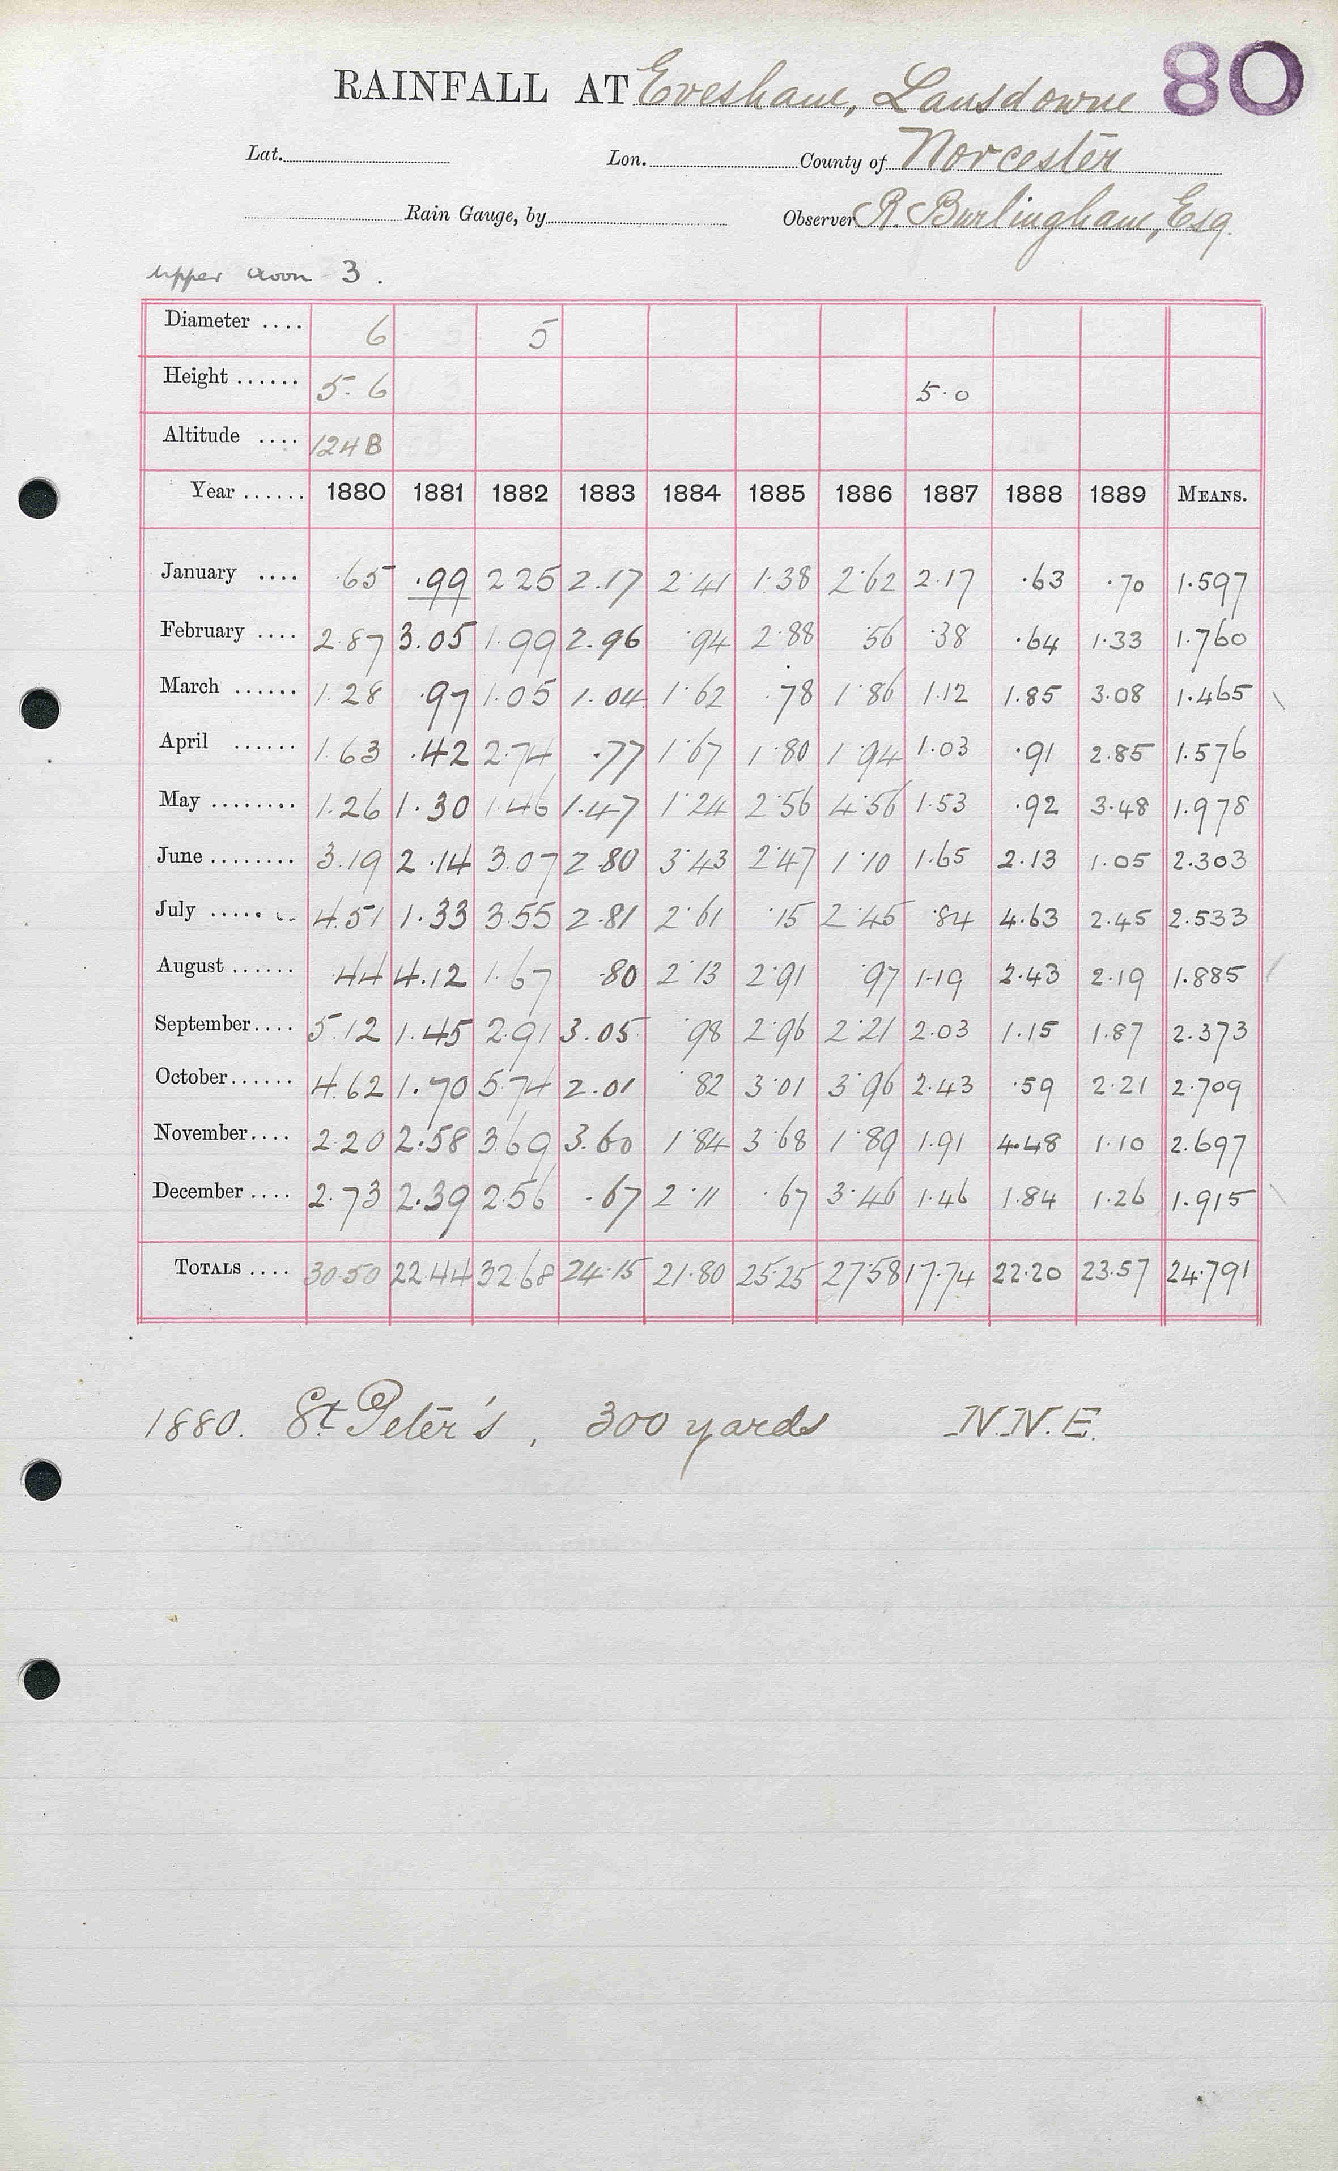 RAINFALL AT Evesham, Lansdowne 80
Lat. Lon. County of Worcester
Rain Gauge, by Observer R. Burlingham, Esq.
Upper Avon 3.
Diameter .... 6 5
Height ...... 5.6 5.0
Altitude .... 124 B
Year ...... 1880 1881 1882 1883 1884 1885 1886 1887 1888 1889 MEANS.
January .... .65 .99 2.25 2.17 2.41 1.38 2.62 2.17 .63 .70 1.597
February .... 2.87 3.05 1.99 2.96 .94 2.88 .56 .38 .64 1.33 1.760
March ...... 1.28 .97 1.05 1.04 1.62 .78 1.86 1.12 1.85 3.08 1.465
April ...... 1.63 .42 2.74 .77 1.67 1.80 1.94 1.03 .91 2.85 1.576
May ........ 1.26 1.30 1.46 1.47 1.24 2.56 4.56 1.53 .92 3.48 1.978
June ........ 3.19 2.14 3.07 2.80 3.43 2.47 1.10 1.65 2.13 1.05 2.303
July ........ 4.51 1.33 3.55 2.81 2.61 .15 2.45 .84 4.63 2.45 2.533
August ...... .44 4.12 1.67 .80 2.13 2.91 .97 1.19 2.43 2.19 1.885
September.... 5.12 1.45 2.91 3.05 .98 2.96 2.21 2.03 1.15 1.87 2.373
October...... 4.62 1.70 5.74 2.01 .82 3.01 3.96 2.43 .59 2.21 2.709
November.... 2.20 2.58 3.69 3.60 1.84 3.68 1.89 1.91 4.48 1.10 2.697
December .... 2.73 2.39 2.56 .67 2.11 .67 3.46 1.46 1.84 1.26 1.915
TOTALS .... 30.50 22.44 32.68 24.15 21.80 25.25 27.58 17.74 22.20 23.57 24.791
1880. St Peter's, 300 yards N.N.E.